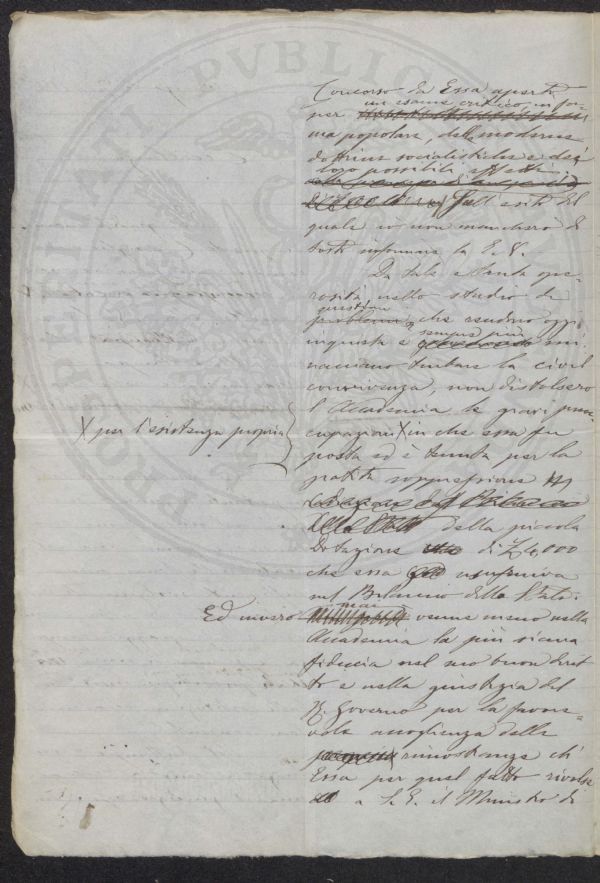 PROSPERITATI PVBLICAE
Concorso da Essa aperto
un esame critico, in for-
per
ma popolare, delle moderne
dottrine socialistiche e dei
loro possibili effetti
esito del
quale io non mancherò di
tosto informare la E. V.
Da tale e tanta ope-
rosità nello studio di
questioni
problemi che rendono oggi
sempre più
inquieta e mi-
nacciano turbare la civil
convivenza, non distolsero
l'Accademia le gravi preoc-
cupazioni X in che essa fu
X per l'esistenza propria
posta ed è tenuta per la
patita soppressione
dello Stato della piccola
Dotazione di £ 4,000
che essa
nel Bilancio dello Stato.
mai
Ed invero venne meno nella
Accademia la più sicura
fiducia nel suo buon dirit-
to e nella giustizia del
R. Governo per la favore-
vole accoglienza delle
rimostranze ch'
Essa per quel fatto rivolse
a S. E. il Ministro di